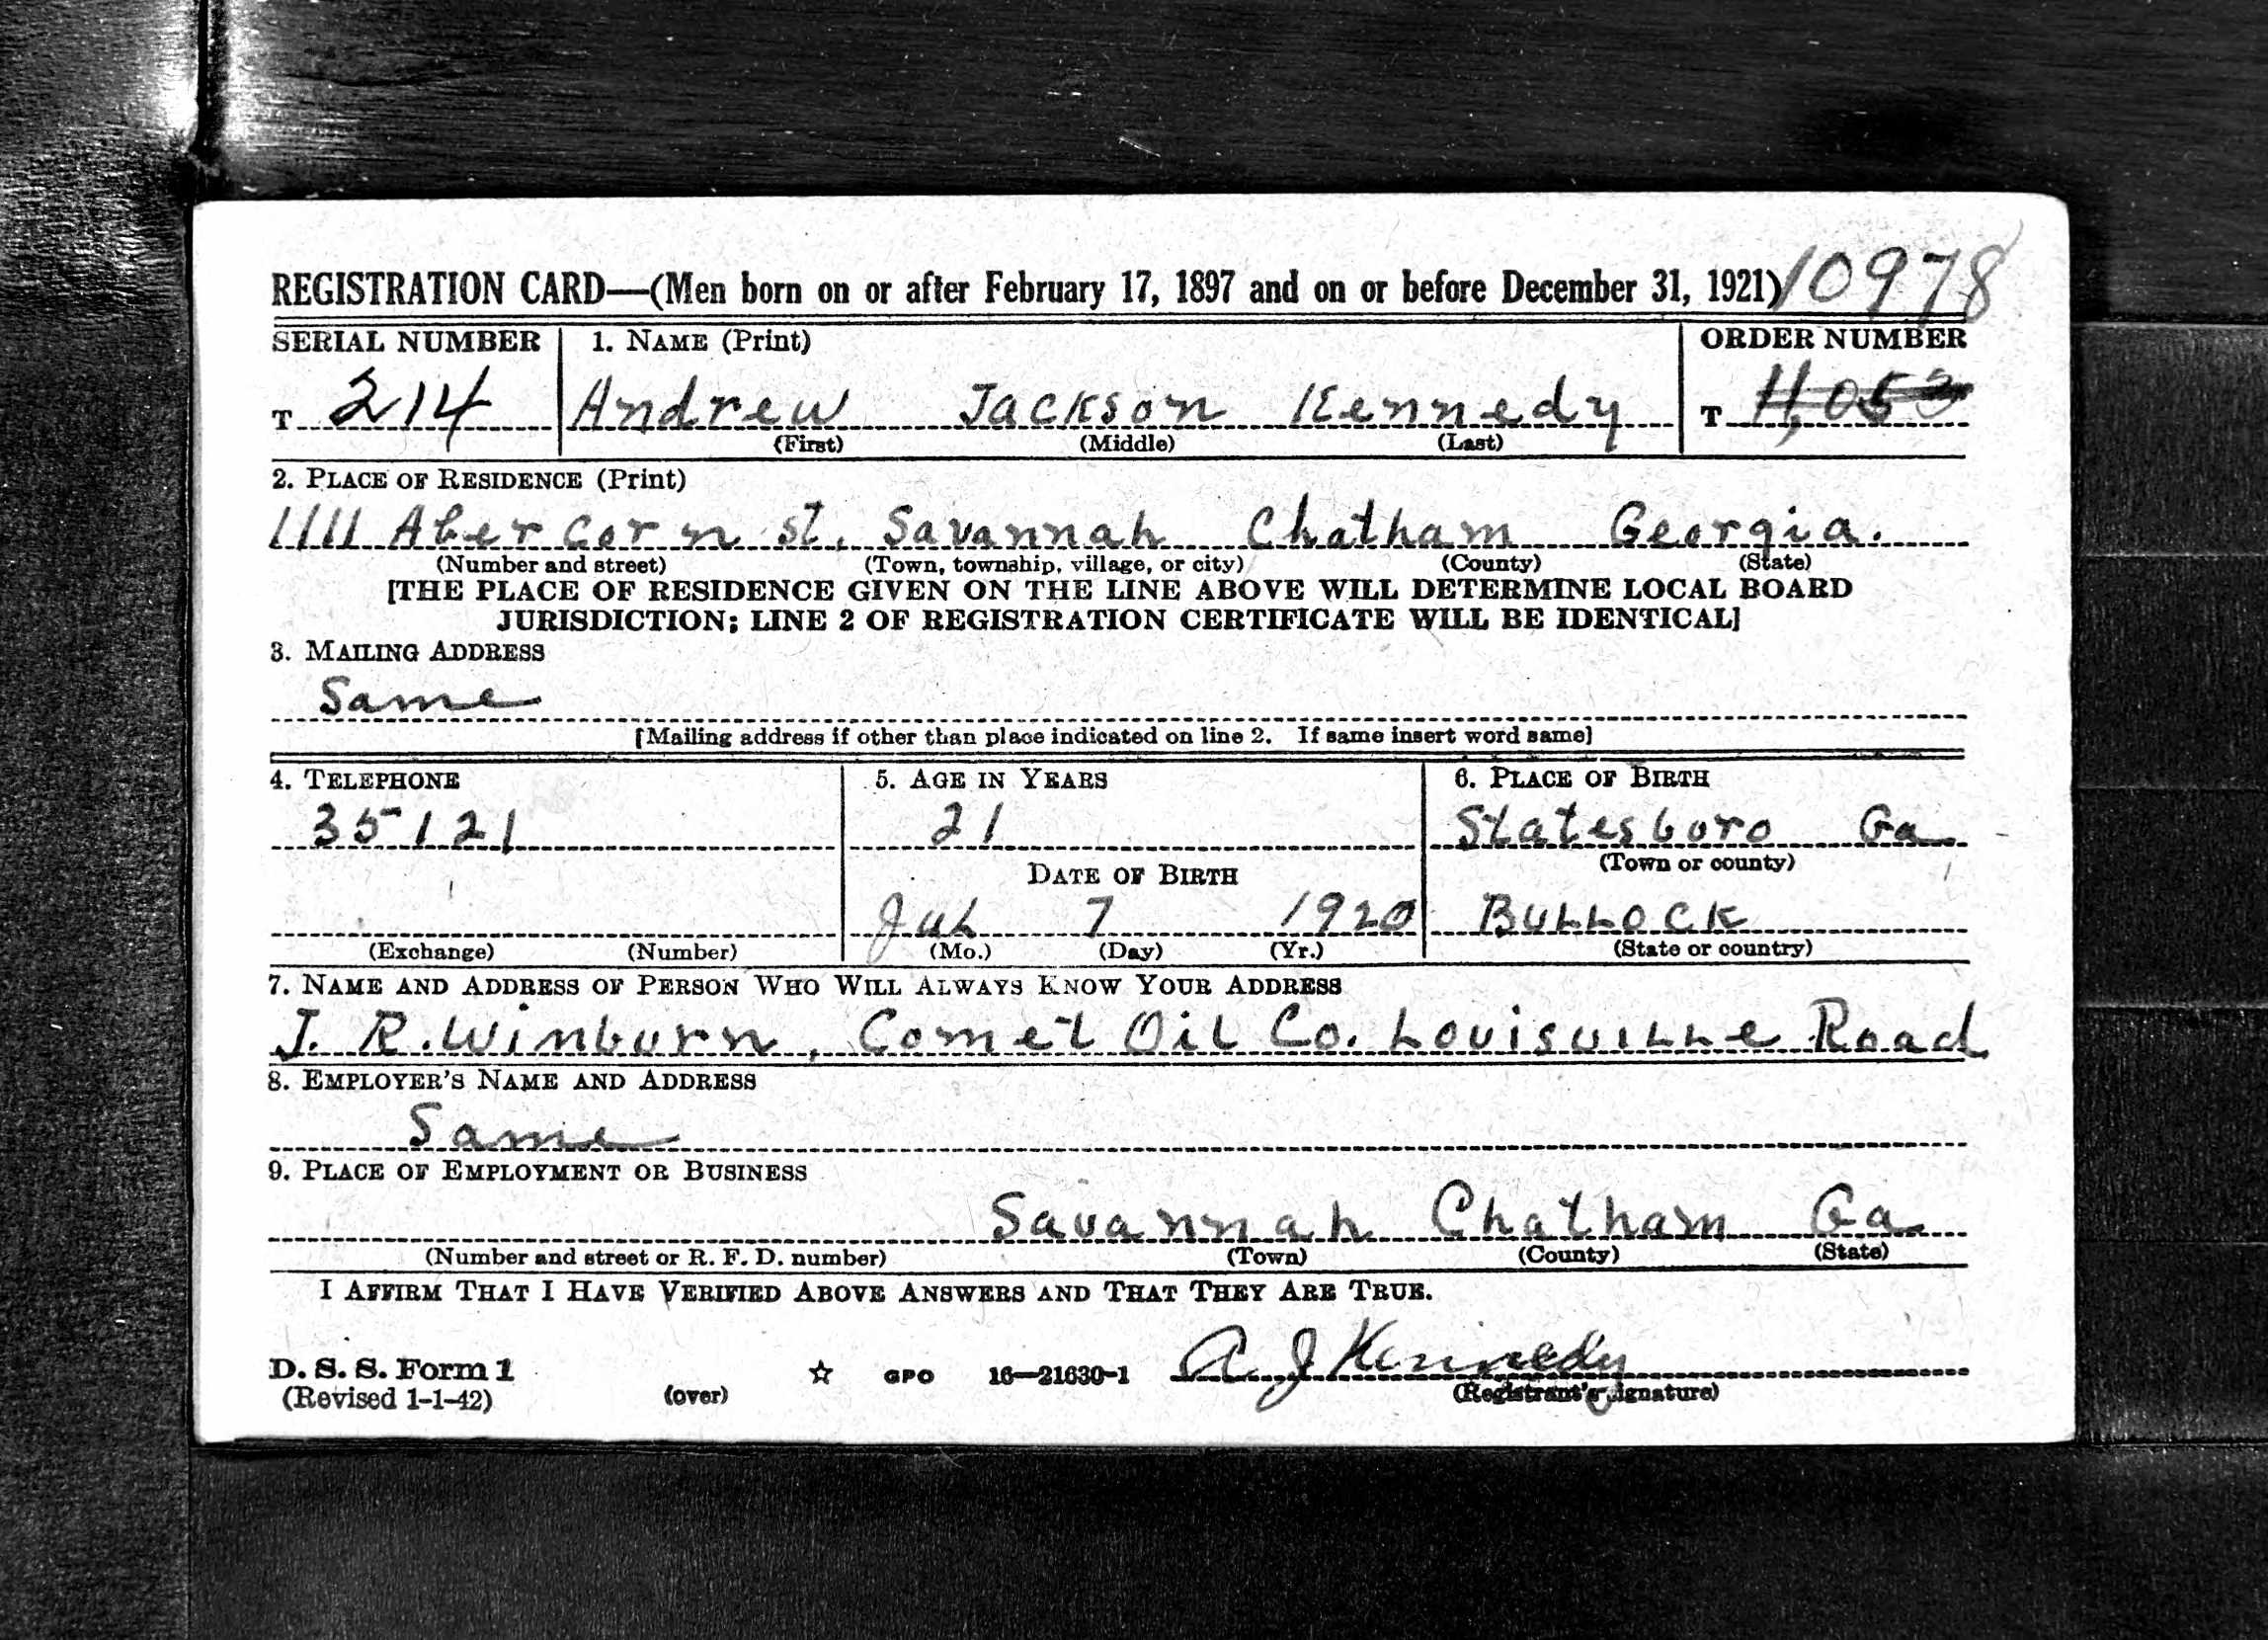 10978
REGISTRATION CARD—(Men born on or after February 17, 1897 and on or before December 31, 1921)
SERIAL NUMBER 1. NAME (Print) ORDER NUMBER
T 214 Andrew Jackson Kennedy T 11,053
(First) (Middle) (Last)
2. PLACE OF RESIDENCE (Print)
1111 Abercorn St. Savannah Chatham Georgia.
(Number and street) (Town, township, village, or city) (County) (State)
[THE PLACE OF RESIDENCE GIVEN ON THE LINE ABOVE WILL DETERMINE LOCAL BOARD
JURISDICTION; LINE 2 OF REGISTRATION CERTIFICATE WILL BE IDENTICAL]
3. MAILING ADDRESS
Same
[Mailing address if other than place indicated on line 2. If same insert word same]
4. TELEPHONE 5. AGE IN YEARS 6. PLACE OF BIRTH
35121 21 Statesboro Ga
(Town or county)
DATE OF BIRTH
Jul 7 1920 BULLOCK
(Exchange) (Number) (Mo.) (Day) (Yr.) (State or country)
7. NAME AND ADDRESS OF PERSON WHO WILL ALWAYS KNOW YOUR ADDRESS
J. R. Winburn, Comet Oil Co. Louisville Road
8. EMPLOYER'S NAME AND ADDRESS
Same
9. PLACE OF EMPLOYMENT OR BUSINESS
Savannah Chatham Ga
(Number and street or R. F. D. number) (Town) (County) (State)
I AFFIRM THAT I HAVE VERIFIED ABOVE ANSWERS AND THAT THEY ARE TRUE.
A J Kennedy
D. S. S. Form 1 ☆ GPO 16—21630-1
(Revised 1-1-42) (over) (Registrant's signature)